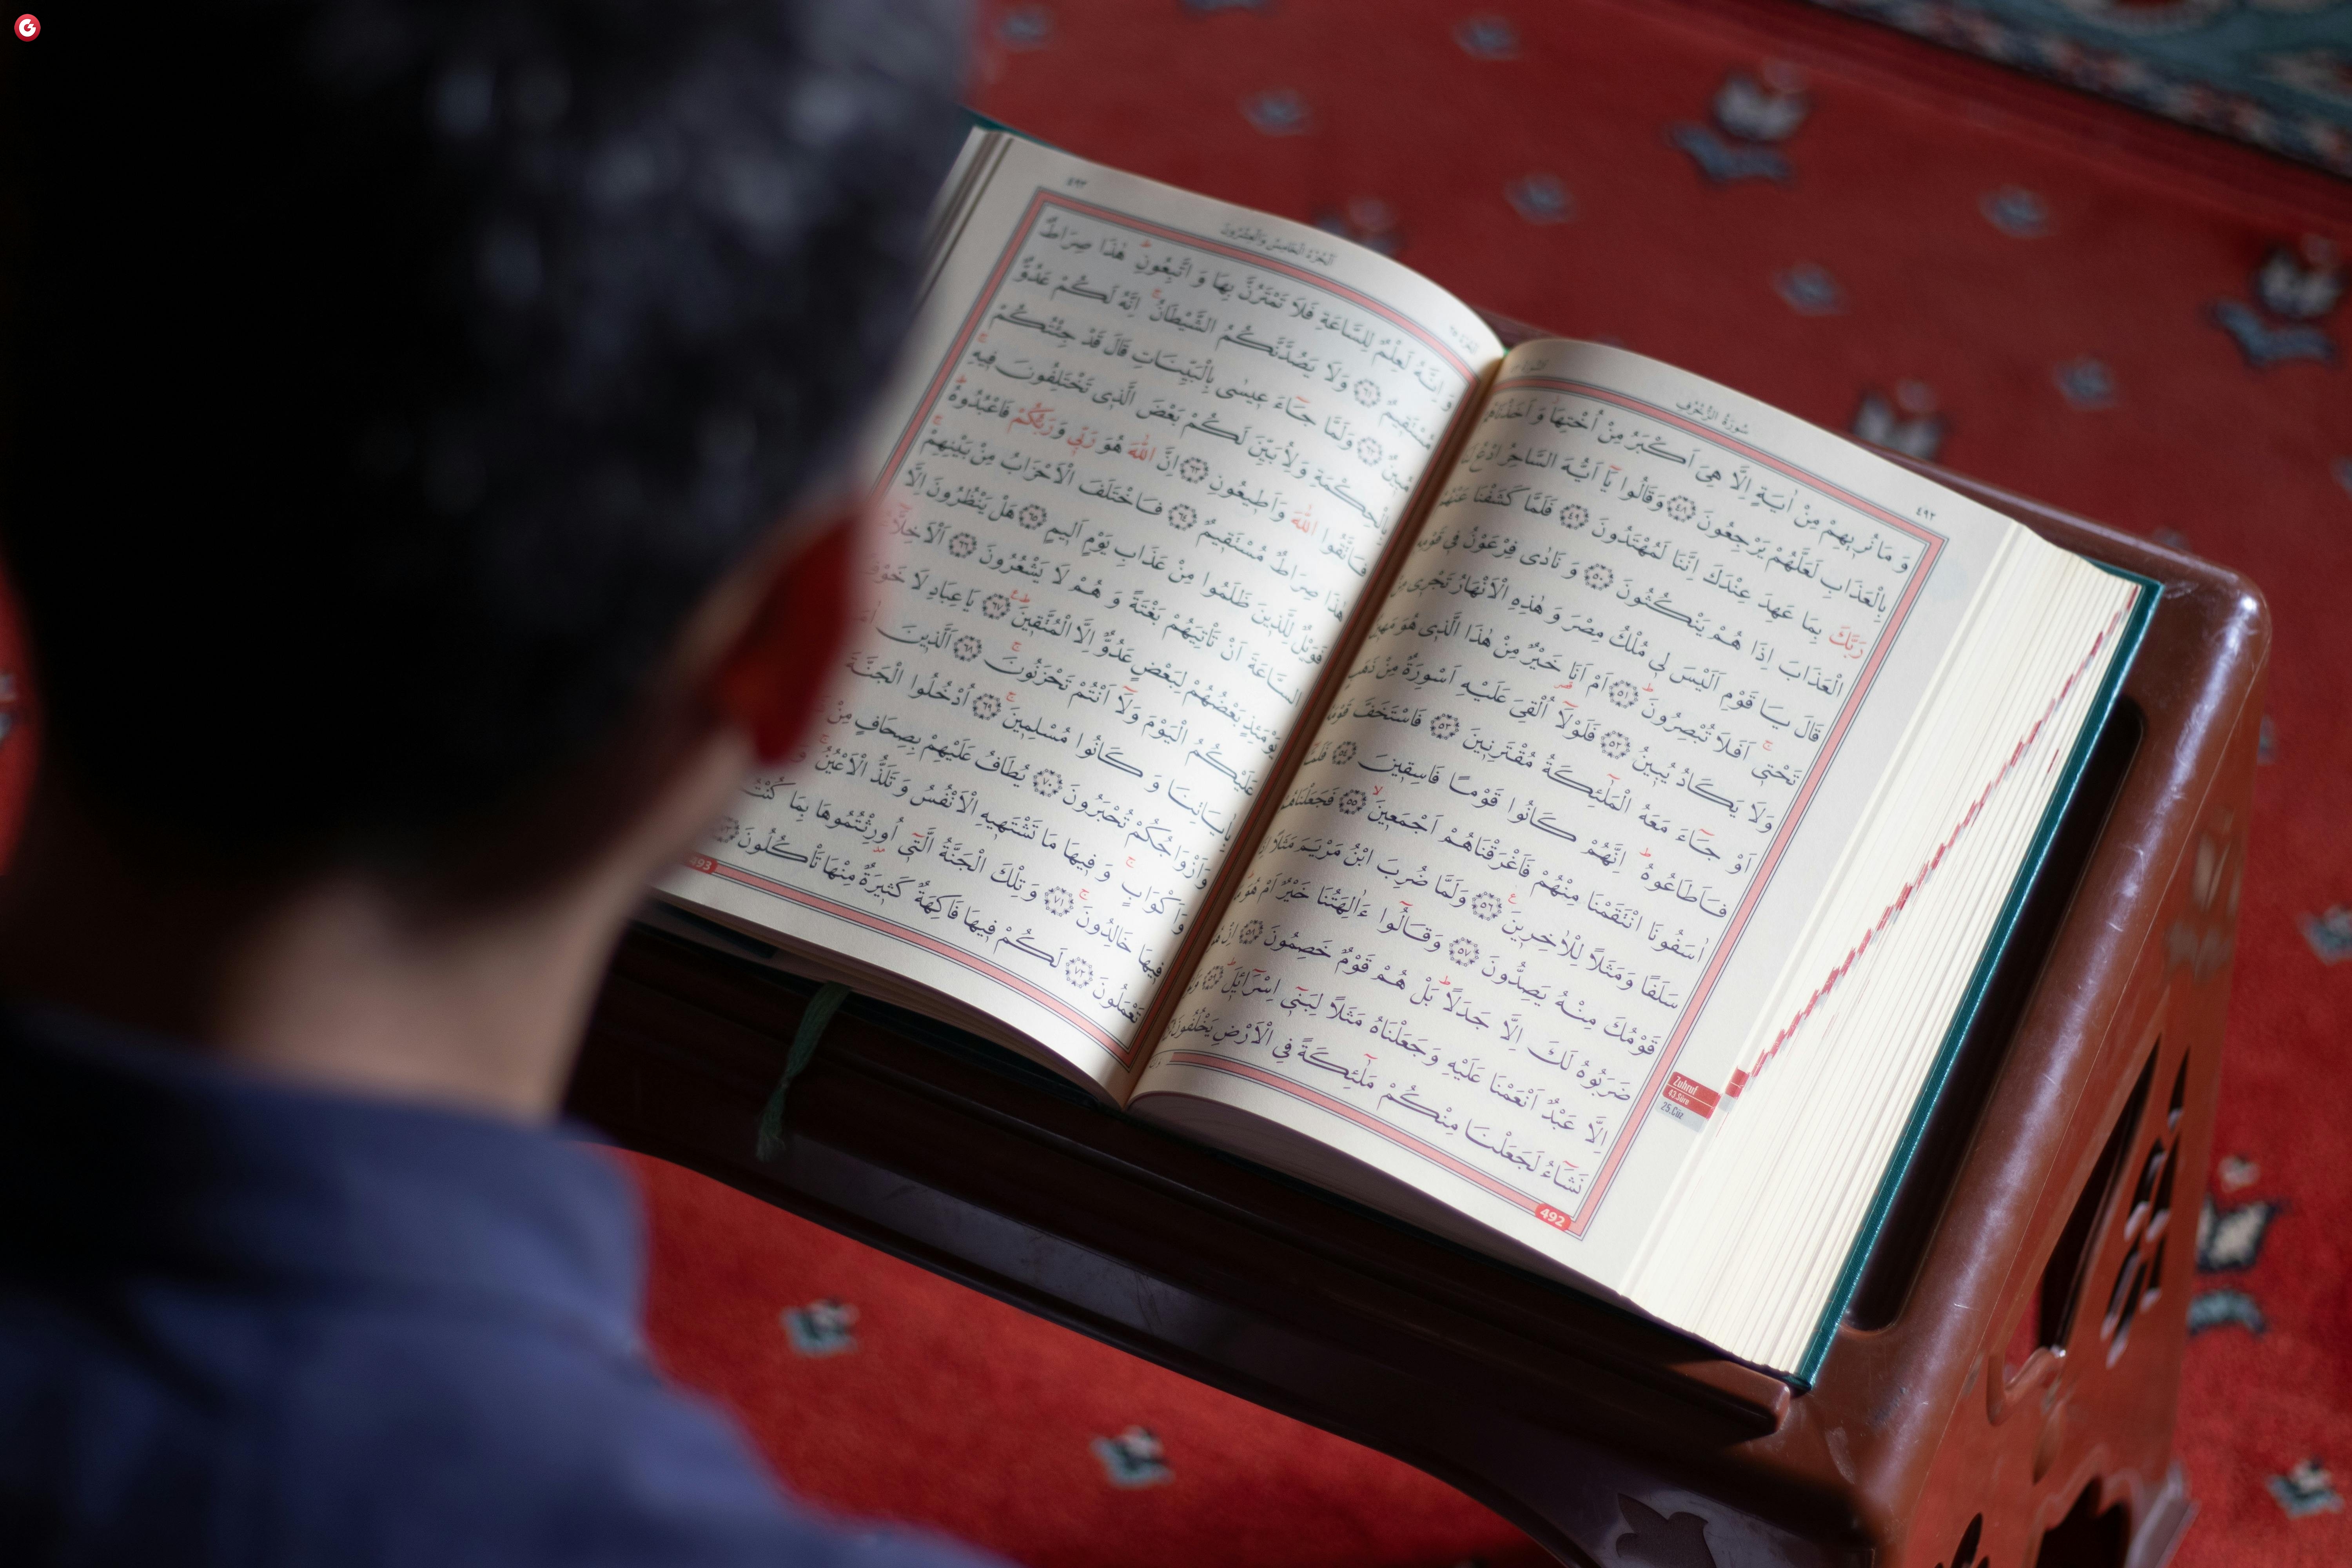 سُورَةُ الزُّخْرُفِ
٤٩٢
وَمَا نُرٖيهِمْ مِنْ اٰيَةٍ اِلَّا هِيَ اَكْبَرُ مِنْ اُخْتِهَا وَاَخَذْنَاهُمْ
بِالْعَذَابِ لَعَلَّهُمْ يَرْجِعُونَ ﴿٤٨﴾ وَقَالُوا يَٓا اَيُّهَ السَّاحِرُ ادْعُ لَنَا
رَبَّكَ بِمَا عَهِدَ عِنْدَكَ اِنَّنَا لَمُهْتَدُونَ ﴿٤٩﴾ فَلَمَّا كَشَفْنَا عَنْهُمُ
الْعَذَابَ اِذَا هُمْ يَنْكُثُونَ ﴿٥٠﴾ وَنَادٰى فِرْعَوْنُ فٖي قَوْمِهٖ
قَالَ يَا قَوْمِ اَلَيْسَ لٖي مُلْكُ مِصْرَ وَهٰذِهِ الْاَنْهَارُ تَجْرٖي مِنْ
تَحْتٖيۚ اَفَلَا تُبْصِرُونَ ﴿٥١﴾ اَمْ اَنَا خَيْرٌ مِنْ هٰذَا الَّذٖي هُوَ مَهٖينٌ
وَلَا يَكَادُ يُبٖينُ ﴿٥٢﴾ فَلَوْلَٓا اُلْقِيَ عَلَيْهِ اَسْوِرَةٌ مِنْ ذَهَبٍ
اَوْ جَٓاءَ مَعَهُ الْمَلٰٓئِكَةُ مُقْتَرِنٖينَ ﴿٥٣﴾ فَاسْتَخَفَّ قَوْمَهُ
فَاَطَاعُوهُؕ اِنَّهُمْ كَانُوا قَوْمًا فَاسِقٖينَ ﴿٥٤﴾ فَلَمَّٓا
اٰسَفُونَا انْتَقَمْنَا مِنْهُمْ فَاَغْرَقْنَاهُمْ اَجْمَعٖينَۙ ﴿٥٥﴾ فَجَعَلْنَاهُمْ
سَلَفًا وَمَثَلًا لِلْاٰخِرٖينَ ﴿٥٦﴾ وَلَمَّا ضُرِبَ ابْنُ مَرْيَمَ مَثَلًا اِذَا
قَوْمُكَ مِنْهُ يَصِدُّونَ ﴿٥٧﴾ وَقَالُٓوا ءَاٰلِهَتُنَا خَيْرٌ اَمْ هُوَؕ مَا
ضَرَبُوهُ لَكَ اِلَّا جَدَلًاؕ بَلْ هُمْ قَوْمٌ خَصِمُونَ ﴿٥٨﴾ اِنْ هُوَ
اِلَّا عَبْدٌ اَنْعَمْنَا عَلَيْهِ وَجَعَلْنَاهُ مَثَلًا لِبَنٖٓي اِسْرَٓائٖيلَؕ ﴿٥٩﴾ وَلَوْ
نَشَٓاءُ لَجَعَلْنَا مِنْكُمْ مَلٰٓئِكَةً فِي الْاَرْضِ يَخْلُفُونَ
492
Zuhruf
43.Sûre
25.Cüz
٤٩٣
اَلْجُزْءُ الْخَامِسُ وَالْعِشْرُونَ
وَاِنَّهُ لَعِلْمٌ لِلسَّاعَةِ فَلَا تَمْتَرُنَّ بِهَا وَاتَّبِعُونِؕ هٰذَا صِرَاطٌ
مُسْتَقٖيمٌ ﴿٦١﴾ وَلَا يَصُدَّنَّكُمُ الشَّيْطَانُۚ اِنَّهُ لَكُمْ عَدُوٌّ
مُبٖينٌ ﴿٦٢﴾ وَلَمَّا جَٓاءَ عٖيسٰى بِالْبَيِّنَاتِ قَالَ قَدْ جِئْتُكُمْ
بِالْحِكْمَةِ وَلِاُبَيِّنَ لَكُمْ بَعْضَ الَّذٖي تَخْتَلِفُونَ فٖيهِۚ
فَاتَّقُوا اللّٰهَ وَاَطٖيعُونِ ﴿٦٣﴾ اِنَّ اللّٰهَ هُوَ رَبّٖي وَرَبُّكُمْ فَاعْبُدُوهُؕ
هٰذَا صِرَاطٌ مُسْتَقٖيمٌ ﴿٦٤﴾ فَاخْتَلَفَ الْاَحْزَابُ مِنْ بَيْنِهِمْۚ
فَوَيْلٌ لِلَّذٖينَ ظَلَمُوا مِنْ عَذَابِ يَوْمٍ اَلٖيمٍ ﴿٦٥﴾ هَلْ يَنْظُرُونَ اِلَّا
السَّاعَةَ اَنْ تَأْتِيَهُمْ بَغْتَةً وَهُمْ لَا يَشْعُرُونَ ﴿٦٦﴾ اَلْاَخِلَّٓاءُ
يَوْمَئِذٍ بَعْضُهُمْ لِبَعْضٍ عَدُوٌّ اِلَّا الْمُتَّقٖينَ ﴿٦٧﴾ يَا عِبَادِ لَا خَوْفٌ
عَلَيْكُمُ الْيَوْمَ وَلَٓا اَنْتُمْ تَحْزَنُونَۚ ﴿٦٨﴾ اَلَّذٖينَ
بِاٰيَاتِنَا وَكَانُوا مُسْلِمٖينَۚ ﴿٦٩﴾ اُدْخُلُوا الْجَنَّةَ
وَاَزْوَاجُكُمْ تُحْبَرُونَ ﴿٧٠﴾ يُطَافُ عَلَيْهِمْ بِصِحَافٍ مِنْ
وَاَكْوَابٍۚ وَفٖيهَا مَا تَشْتَهٖيهِ الْاَنْفُسُ وَتَلَذُّ الْاَعْيُنُۚ
فٖيهَا خَالِدُونَۚ ﴿٧١﴾ وَتِلْكَ الْجَنَّةُ الَّتٖٓي اُورِثْتُمُوهَا بِمَا كُنْتُمْ
تَعْمَلُونَ ﴿٧٢﴾ لَكُمْ فٖيهَا فَاكِهَةٌ كَثٖيرَةٌ مِنْهَا تَأْكُلُونَ
493